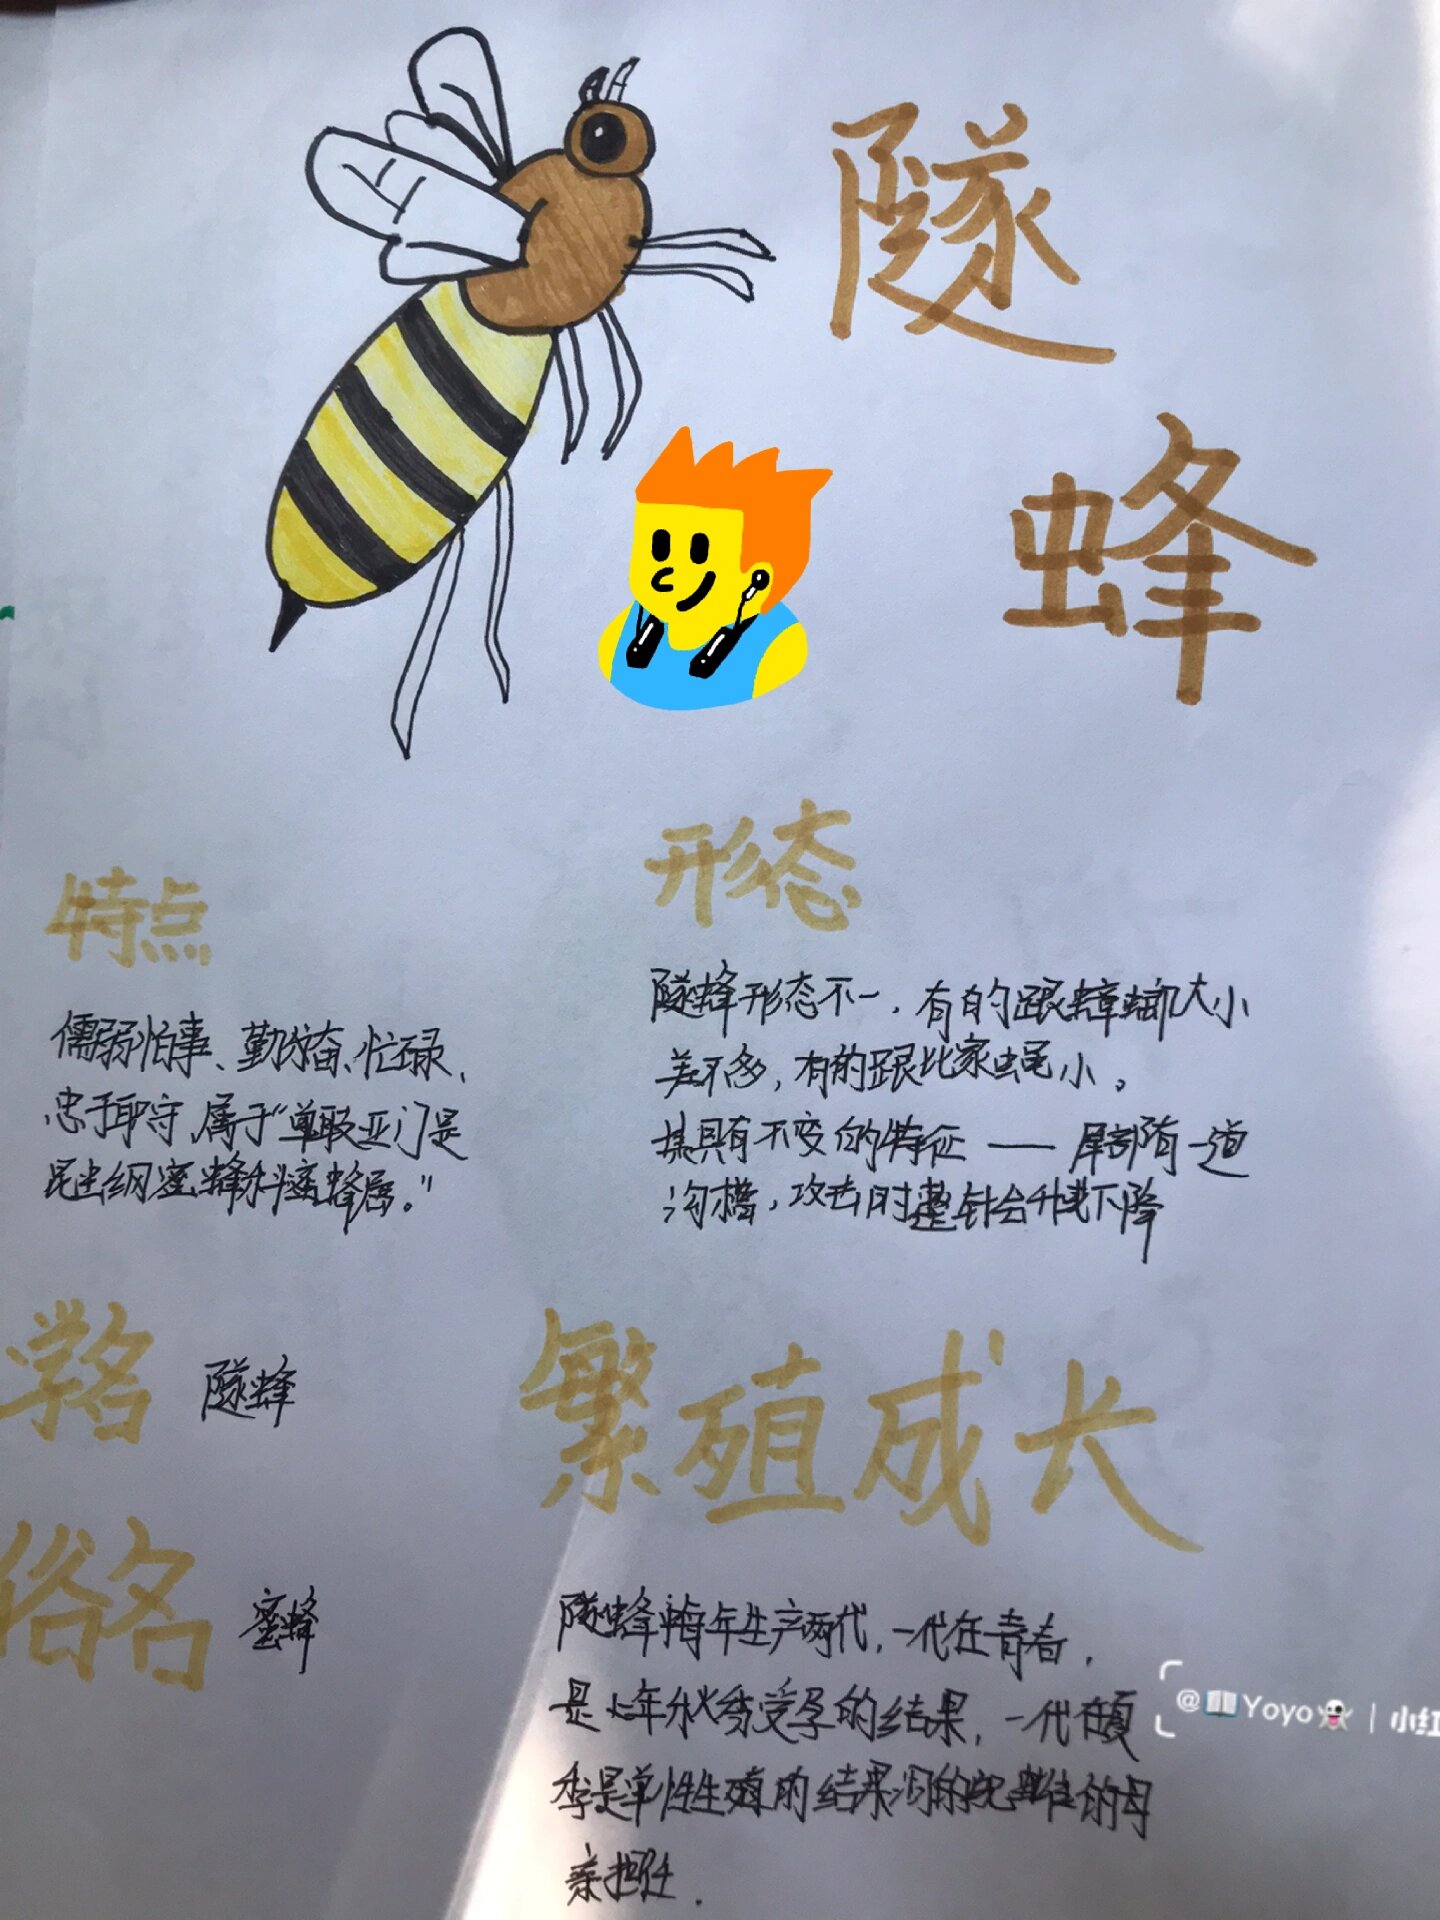 隧
蜂
特点
懦弱怕事、勤奋、忙碌、
忠于职守,属于"单肢亚门是
昆虫纲蜜蜂科蜜蜂属。"
形态
隧蜂形态不一,有的跟蟑螂大小
差不多,有的跟比家蝇小。
其具有不变的特征——尾部有一道
沟槽,攻击时螫针会升或下降
学名
隧蜂
俗名
蜜蜂
繁殖成长
隧蜂每年生产两代,一代在青春,
是上年秋季受孕的结果,一代在夏
季是单性生殖的结果 的母
亲担任.
@Yoyo | 小红